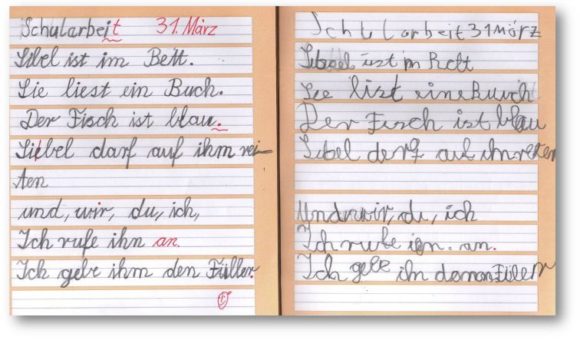 Schularbeit 31. März
Sibel ist im Bett.
Sie liest ein Buch.
Der Fisch ist blau.
Siebel darf auf ihm rei-
ten
und, wir, du, ich,
Ich rufe ihn an.
Ich gebe ihm den Füller
Schullarbeit 31 März
Sibel ist im Bett
See list eine Buuch
Der Fisch ist blau
Sibel derf auf ihm reiten
Undnwir, du, ich
Ich rube ign. an.
Ich gebe ihn demnan Füller